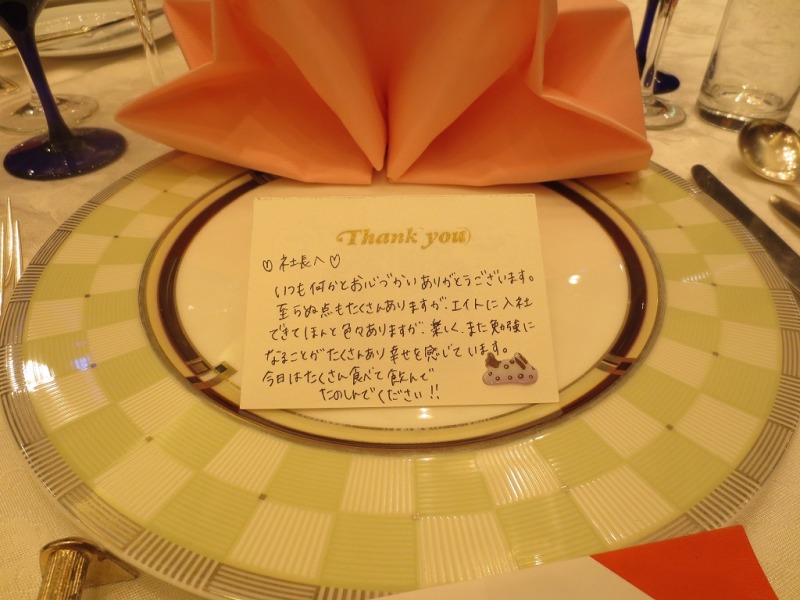 Thank you
♡社長へ♡
いつも何かとお心づかいありがとうございます。
至らぬ点もたくさんありますが、エイトに入社
できてほんと色々ありますが、楽しく、また勉強に
なることがたくさんあり幸せを感じています。
今日はたくさん食べて飲んで
たのしんでください!!